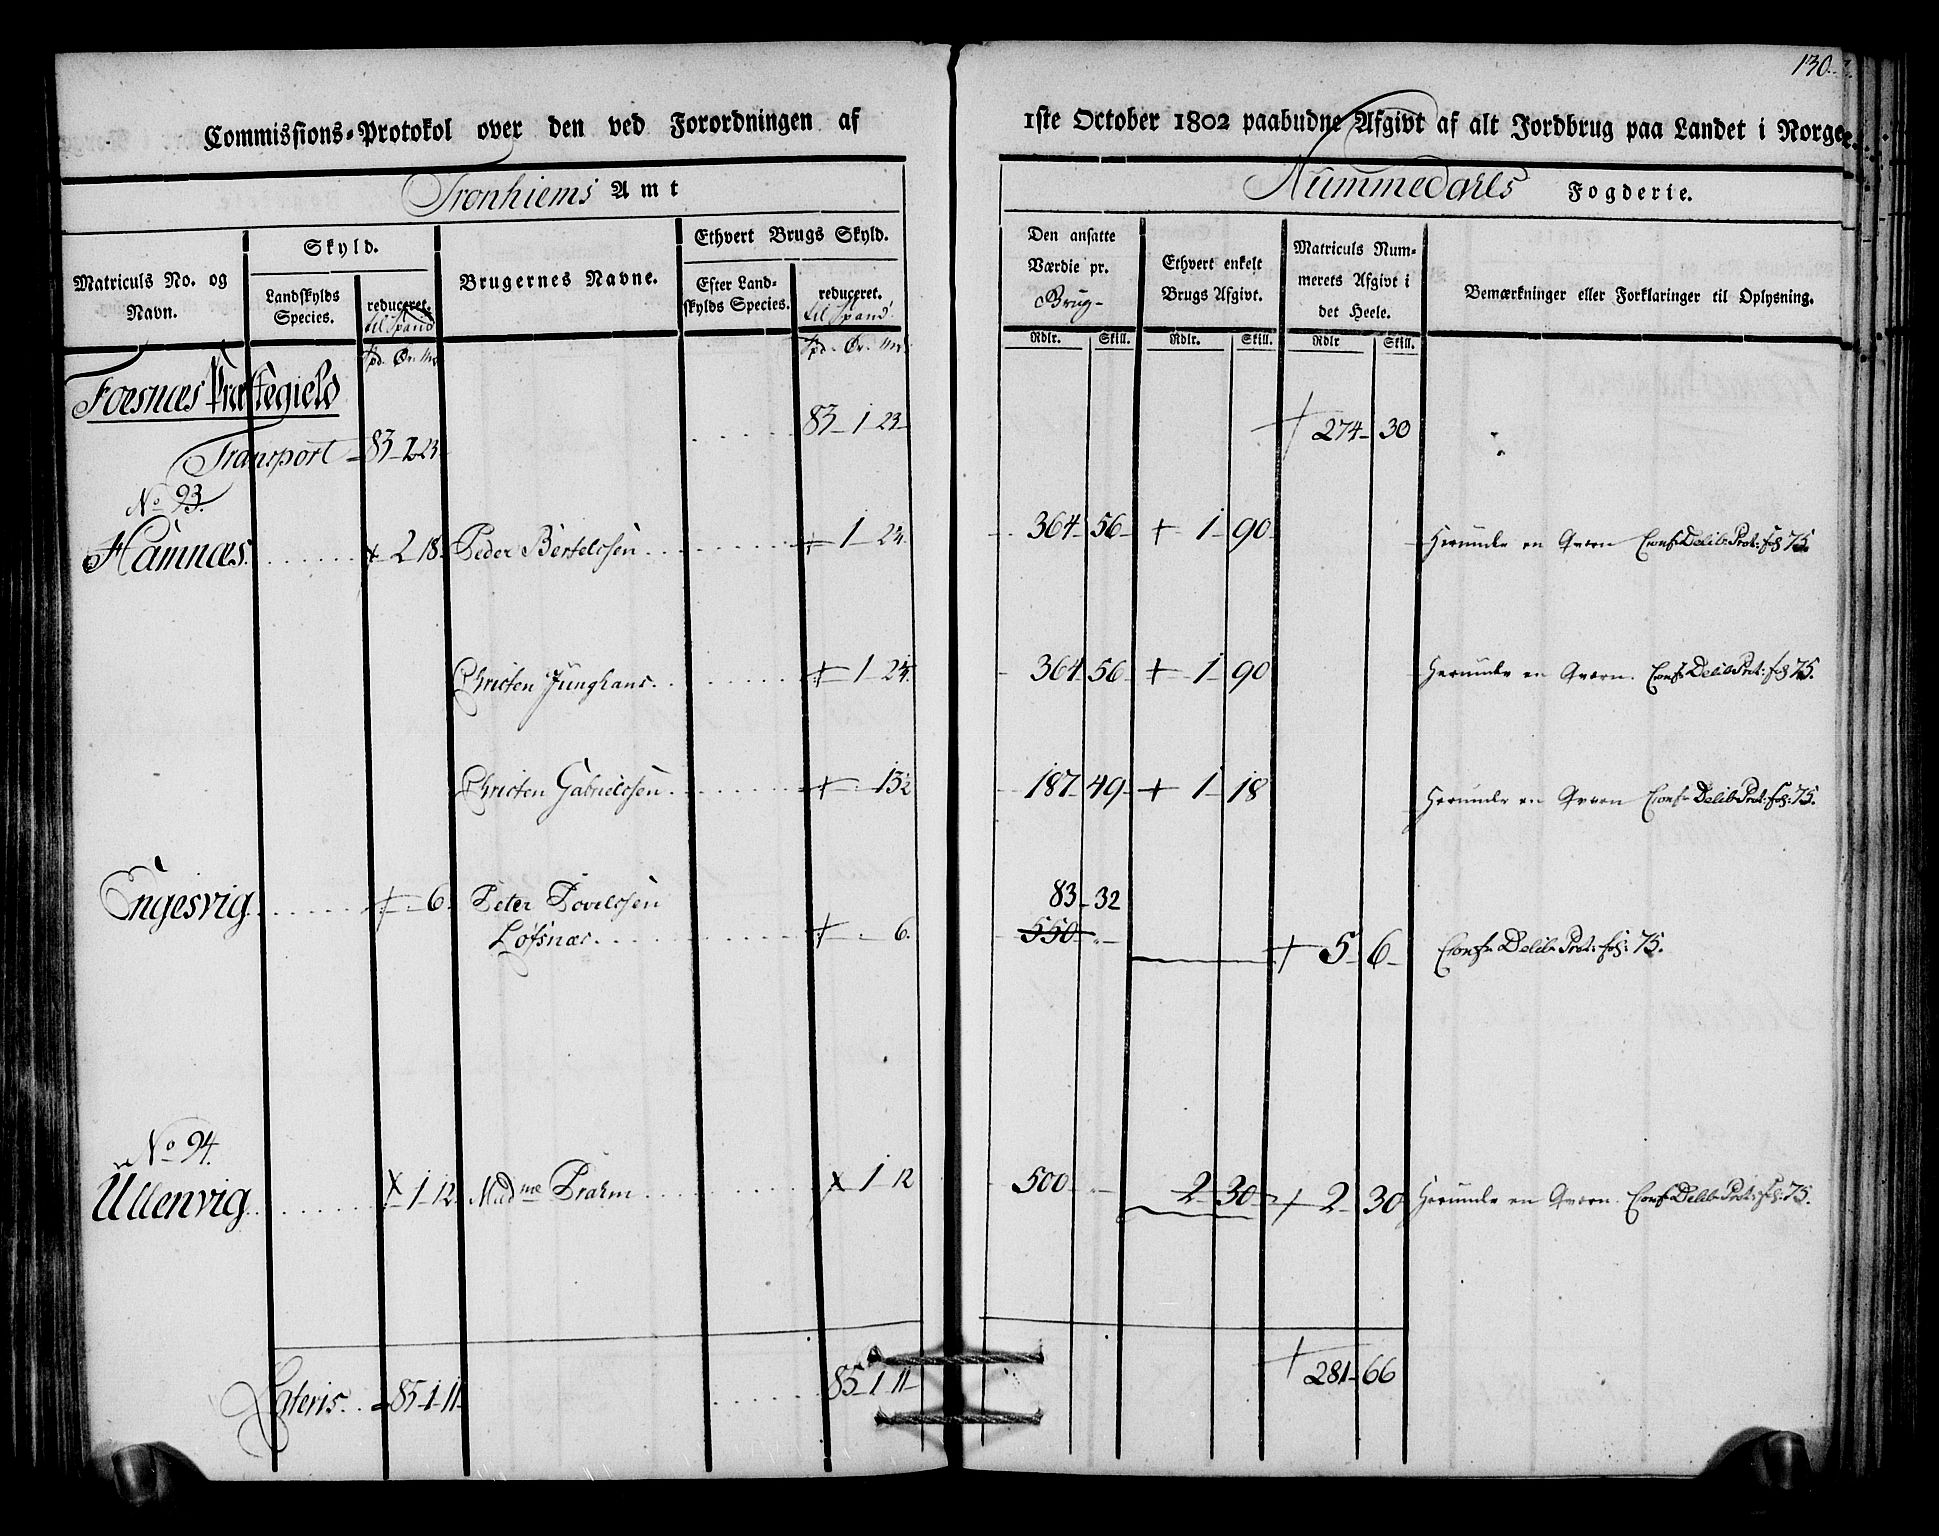 130.
Commissions-Protokol over den ved Forordningen af 1ste October 1802 paabudne Afgivt af alt Jordbrug paa Landet i Norge.
Tronhiems Amt
Nummedahls Fogderie.
Matriculs No. og Navn.
Skyld.
Landskylds Species.
reduceret. til Spand
Brugernes Navne.
Ethvert Brugs Skyld.
Efter Landskylds Species.
reduceret. til Spand.
Den ansatte Værdie pr. Brug-
Ethvert enkelt Brugs Afgivt.
Matriculs Nummerets Afgivt i det Heele.
Bemærkninger eller Forklaringer til Oplysning.
Spd. Ör. Mr. Spd. Ör. Mr. Rdlr. Skill. Rdlr. Skill. Rdlr Skill.
Foesnæs Præstegield
Transport 83 - 1 23 83 - 1 23 + 274 - 30
No 93.
Hamnæs. + 2 18. Peder Bertelssen + 1 - 23 364 - 56 + 1 - 90 Herunder en Qværn Conf: Delib: Prot: fol 75.
Christen Junghans. + 1 23. 364 56 + 1 - 90 Herunder en Qværn. Conf: Delib: Prot: fol 75.
Christen Gabrielssen + 13½ 187 - 49 + 1 - 18 Herunder en Qværn Conf: Delib: Prot: fol: 75.
Engesvig + 6. Peter Povelssen 83 - 32
Löfsnæs. + 6. 550 - + 5 - 6 - Conf: Delib: Prot: fol: 75.
No 94.
Ullenvig + 1 - 12 Madme Prahm + 1 12 500 2 - 30 + 2 - 30 Herunder en Qværn. Conf: Delib: Prot: fol: 75.
Lateris. 85 - 1 - 11 85 - 1 - 11 + 281 - 66